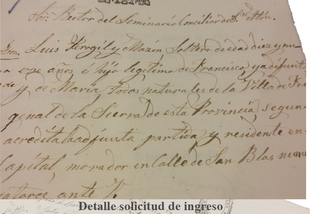 Sor. Rector del Seminario Conciliar de
Luis Virgil y Mazón Soltero de edad diez y nue
ve años e hijo legitimo de Francisco ya difunto
y de Maria, todos naturales de la Villa de Fre
genal de la Sierra de esta Provincia segun
acredita la adjunta partida y residente en
Capital, morador en Calle de San Blas nume
catorce ante V
Detalle solicitud de ingreso